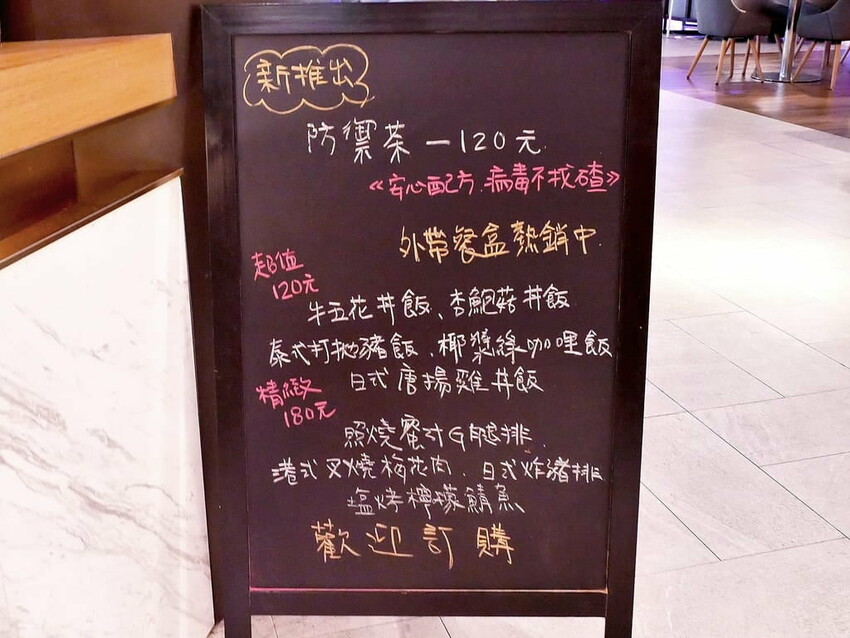 新推出
防禦茶 — 120元
《安心配方.病毒不找碴》
外帶餐盒熱銷中
超值
120元
牛五花丼飯、杏鮑菇丼飯
泰式打拋豬飯、椰漿綠咖哩飯
日式唐揚雞丼飯
精緻
180元
照燒蜜汁G腿排
港式叉燒梅花肉、日式炸豬排
塩烤檸檬鯖魚
歡迎訂購